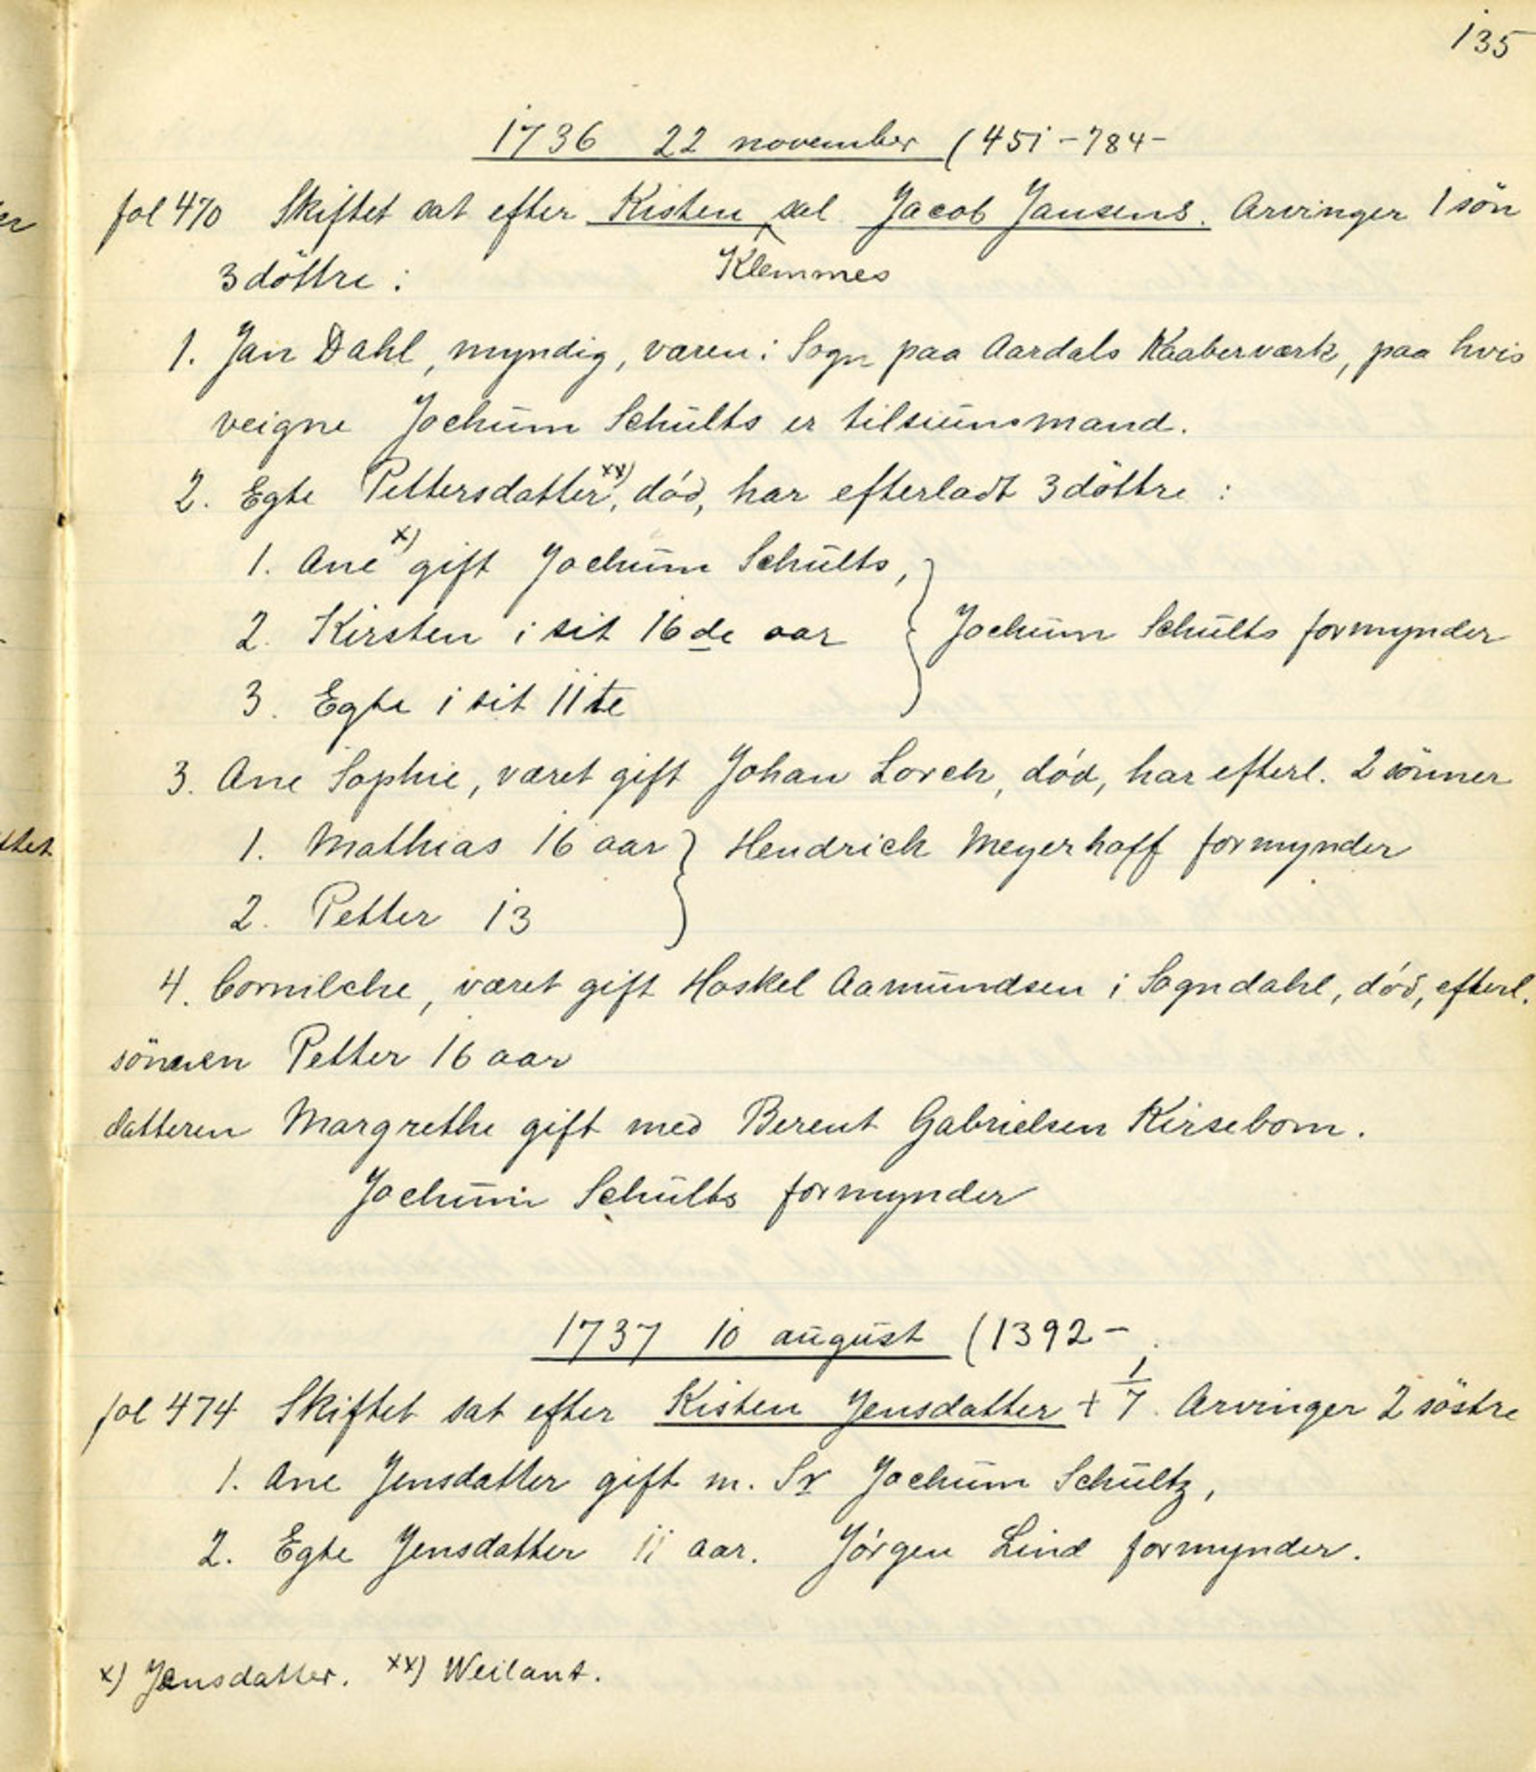 135
1736 22 november (451-784-
fol 470 Skiftet sat efter Kisten sal Jacob Jansens. Arvinger 1 sön
Klemmes
3 döttre :
1. Jan Dahl, myndig, væren i Sogn paa Aardals Kaaberværk, paa hvis
veigne Jochum Schults er tilsiunsmand.
2. Egte Pettersdatter xx), død, har efterladt 3 döttre :
1. Ane x) gift Jochum Schults,
2. Kirsten i sit 16de aar } Jochum Schults formynder
3. Egte i sit 11te
3. Ane Sophie, været gift Johan Lorch, død, har efterl. 2 sönner
1. Mathias 16 aar } Hendrich Meyerhoff formynder
2. Petter 13
4. Cornilche, været gift Haskel Aamundsen i Sogndahl, død, efterl.
sönnen Petter 16 aar
datteren Margrethe gift med Berent Gabrielsen Kirsebom.
Jochum Schults formynder
1737 10 august (1392-
fol 474 Skiftet sat efter Kisten Jensdatter + 1/7. Arvinger 2 söstre
1. Ane Jensdatter gift m. Sr Jochum Schultz,
2. Egte Jensdatter 11 aar. Jörgen Lind formynder.
x) Jensdatter. xx) Weilant.